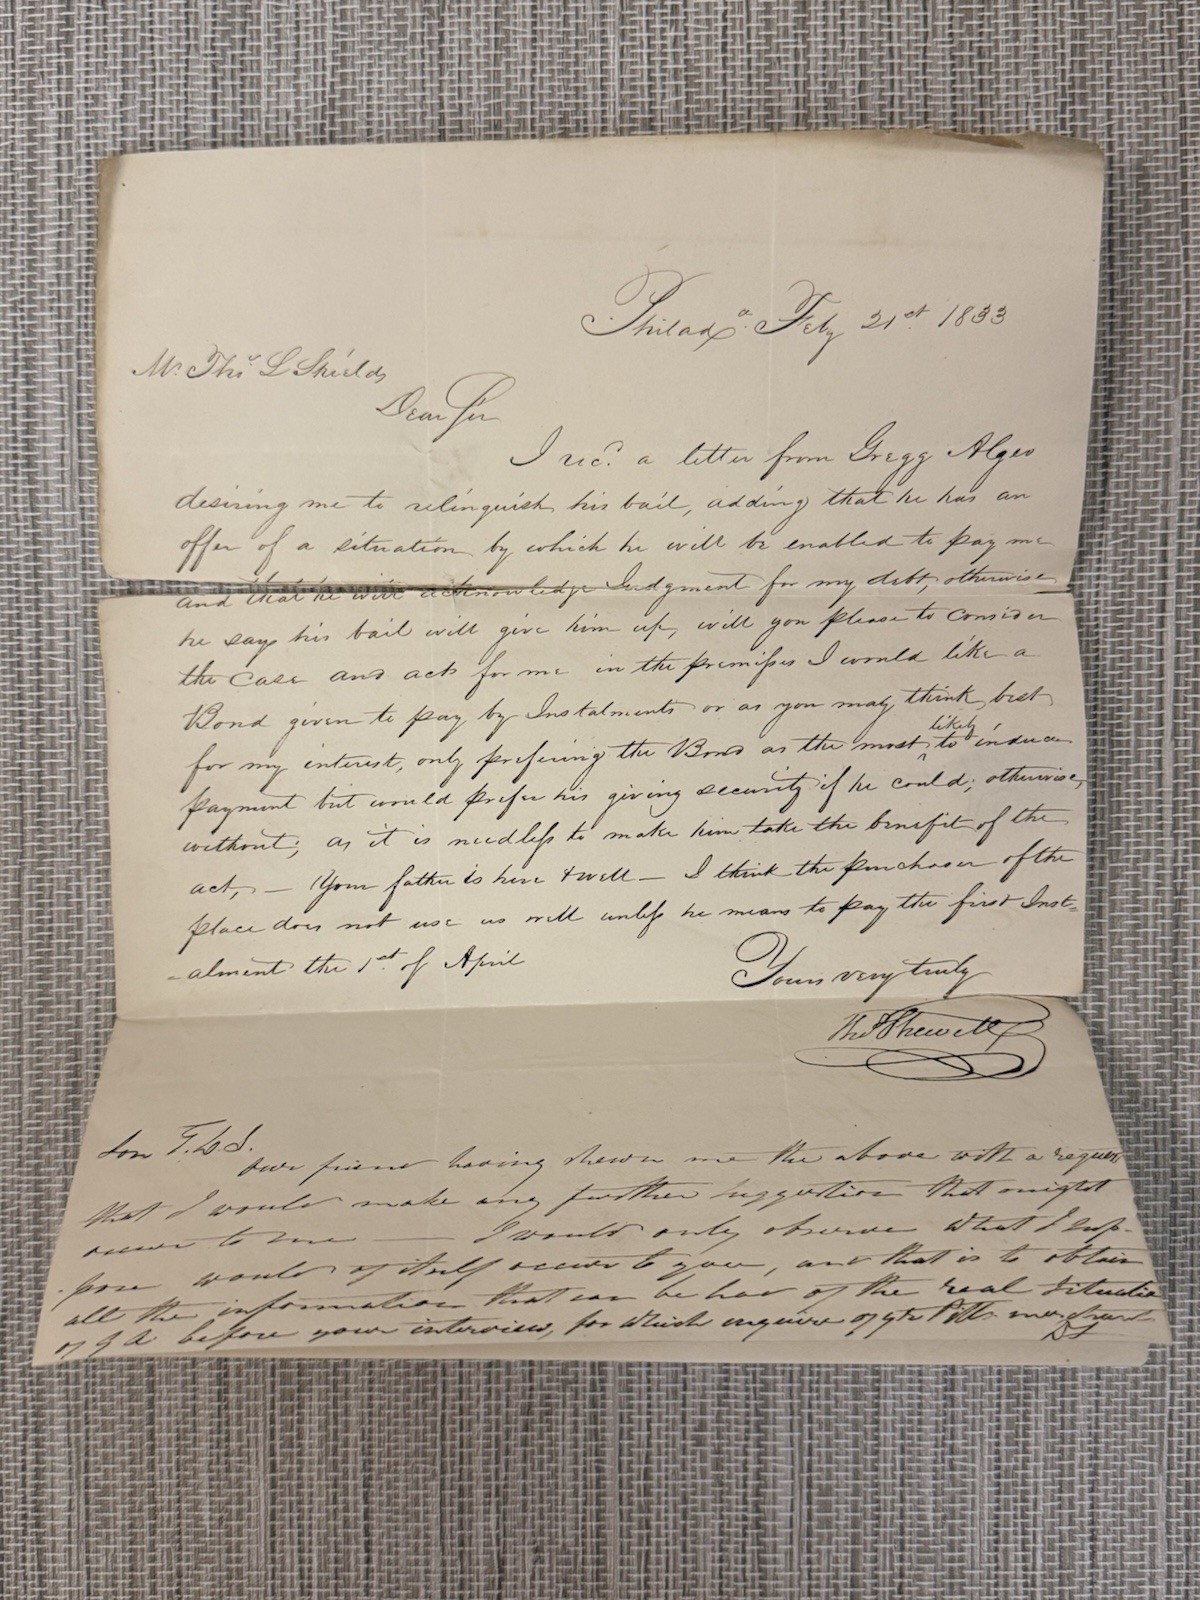 Philad.a Feby 21st. 1833
Mr. Thos. L Shields
Dear Sir
I rec.d a letter from Gregg Algeo
desiring me to relinquish his bail, adding that he has an
offer of a situation by which he will be enabled to pay me
and that he will acknowledge Judgment for my debt, otherwise
he says his bail will give him up, will you please to consider
the case and act for me in the premises I would like a
Bond given to pay by Instalments or as you may think best
for my interest, only prefering the Bond as the most likely to induce
payment but would prefer his giving security if he could; otherwise,
without; as it is needless to make him take the benefit of the
act, — Your father is here & well — I think the purchaser of the
place does not use us well unless he means to pay the first Inst=
=alment the 1st. of April
Yours very truly
Son T.L.S.
our friend having shewn me the above with a request
that I would make any further suggestion that might
occur to me — I would only observe what I sup-
-pose would of itself occur to you, and that is to obtain
all the information that can be had of the real situation
of G A before your interview, for which enquire of